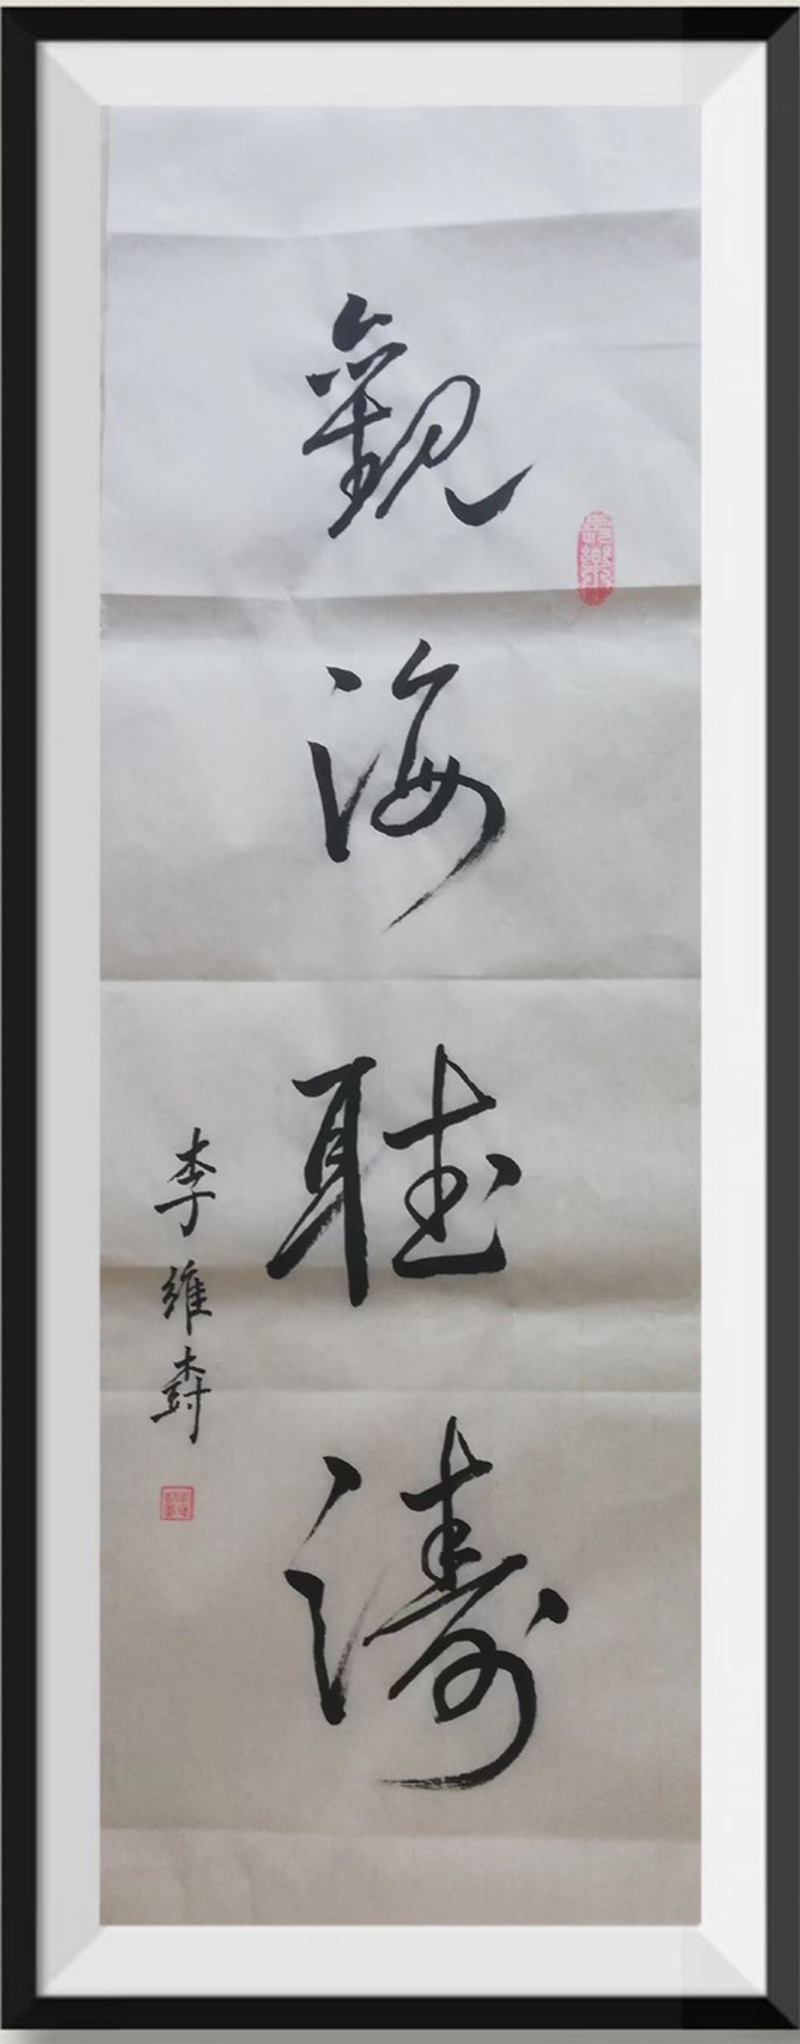 觀海聽濤
李維尌